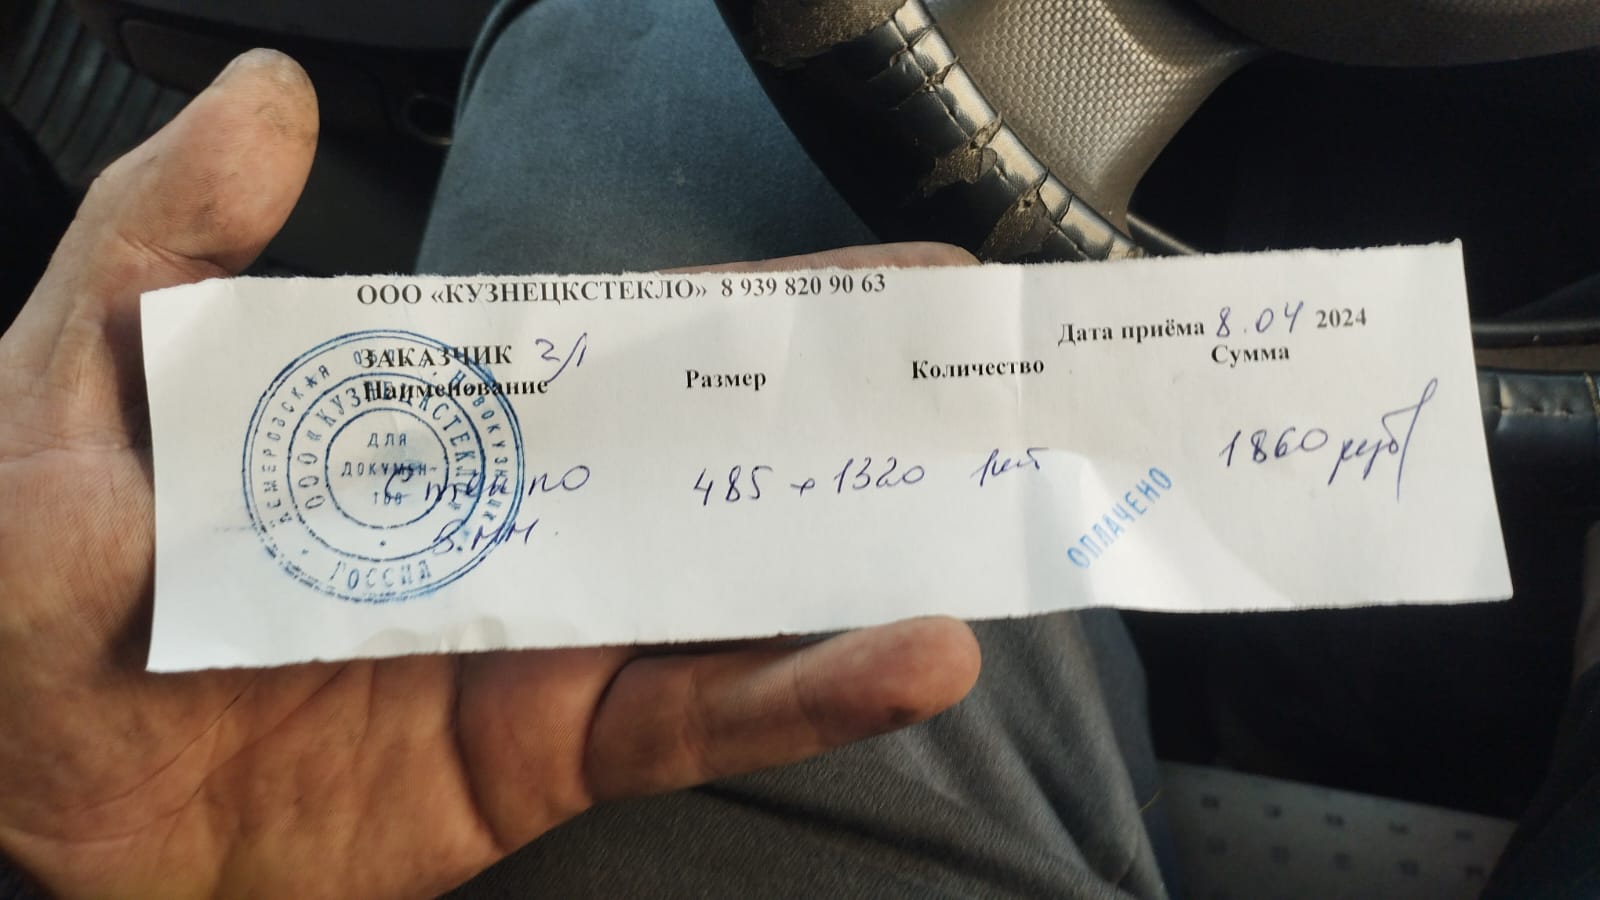 ООО «КУЗНЕЦКСТЕКЛО» 8 939 820 90 63
Дата приёма 8.04 2024
ЗАКАЗЧИК
Наименование Размер Количество Сумма
Стекло 485 × 1320 1шт 1860 руб
ОПЛАЧЕНО
КЕМЕРОВСКАЯ ОБЛ. Г. НОВОКУЗНЕЦК
ООО «КУЗНЕЦКСТЕКЛО»
ДЛЯ
ДОКУМЕН-
ТОВ
РОССИЯ